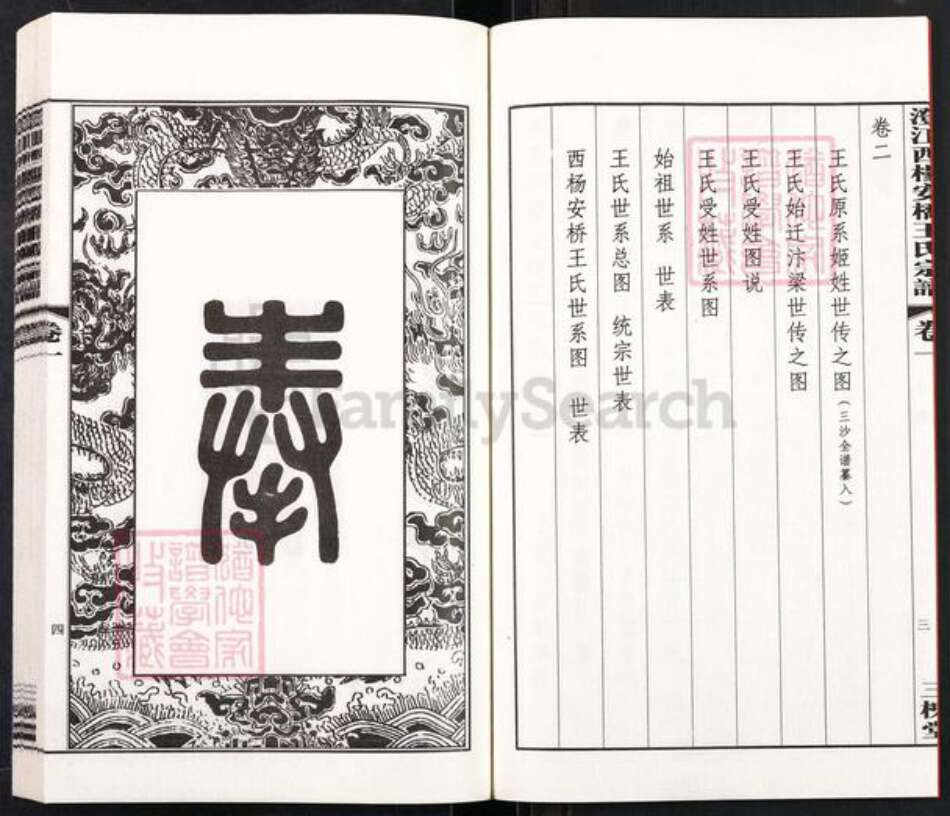 卷二
王氏原系姬姓世传之图（三沙全谱纂入）
王氏始迁汴梁世传之图
王氏受姓图说
王氏受姓世系图
始祖世系 世表
王氏世系总图 统宗世表
西杨安桥王氏世系图 世表
卷一
三
奉
卷一
四
FamilySearch